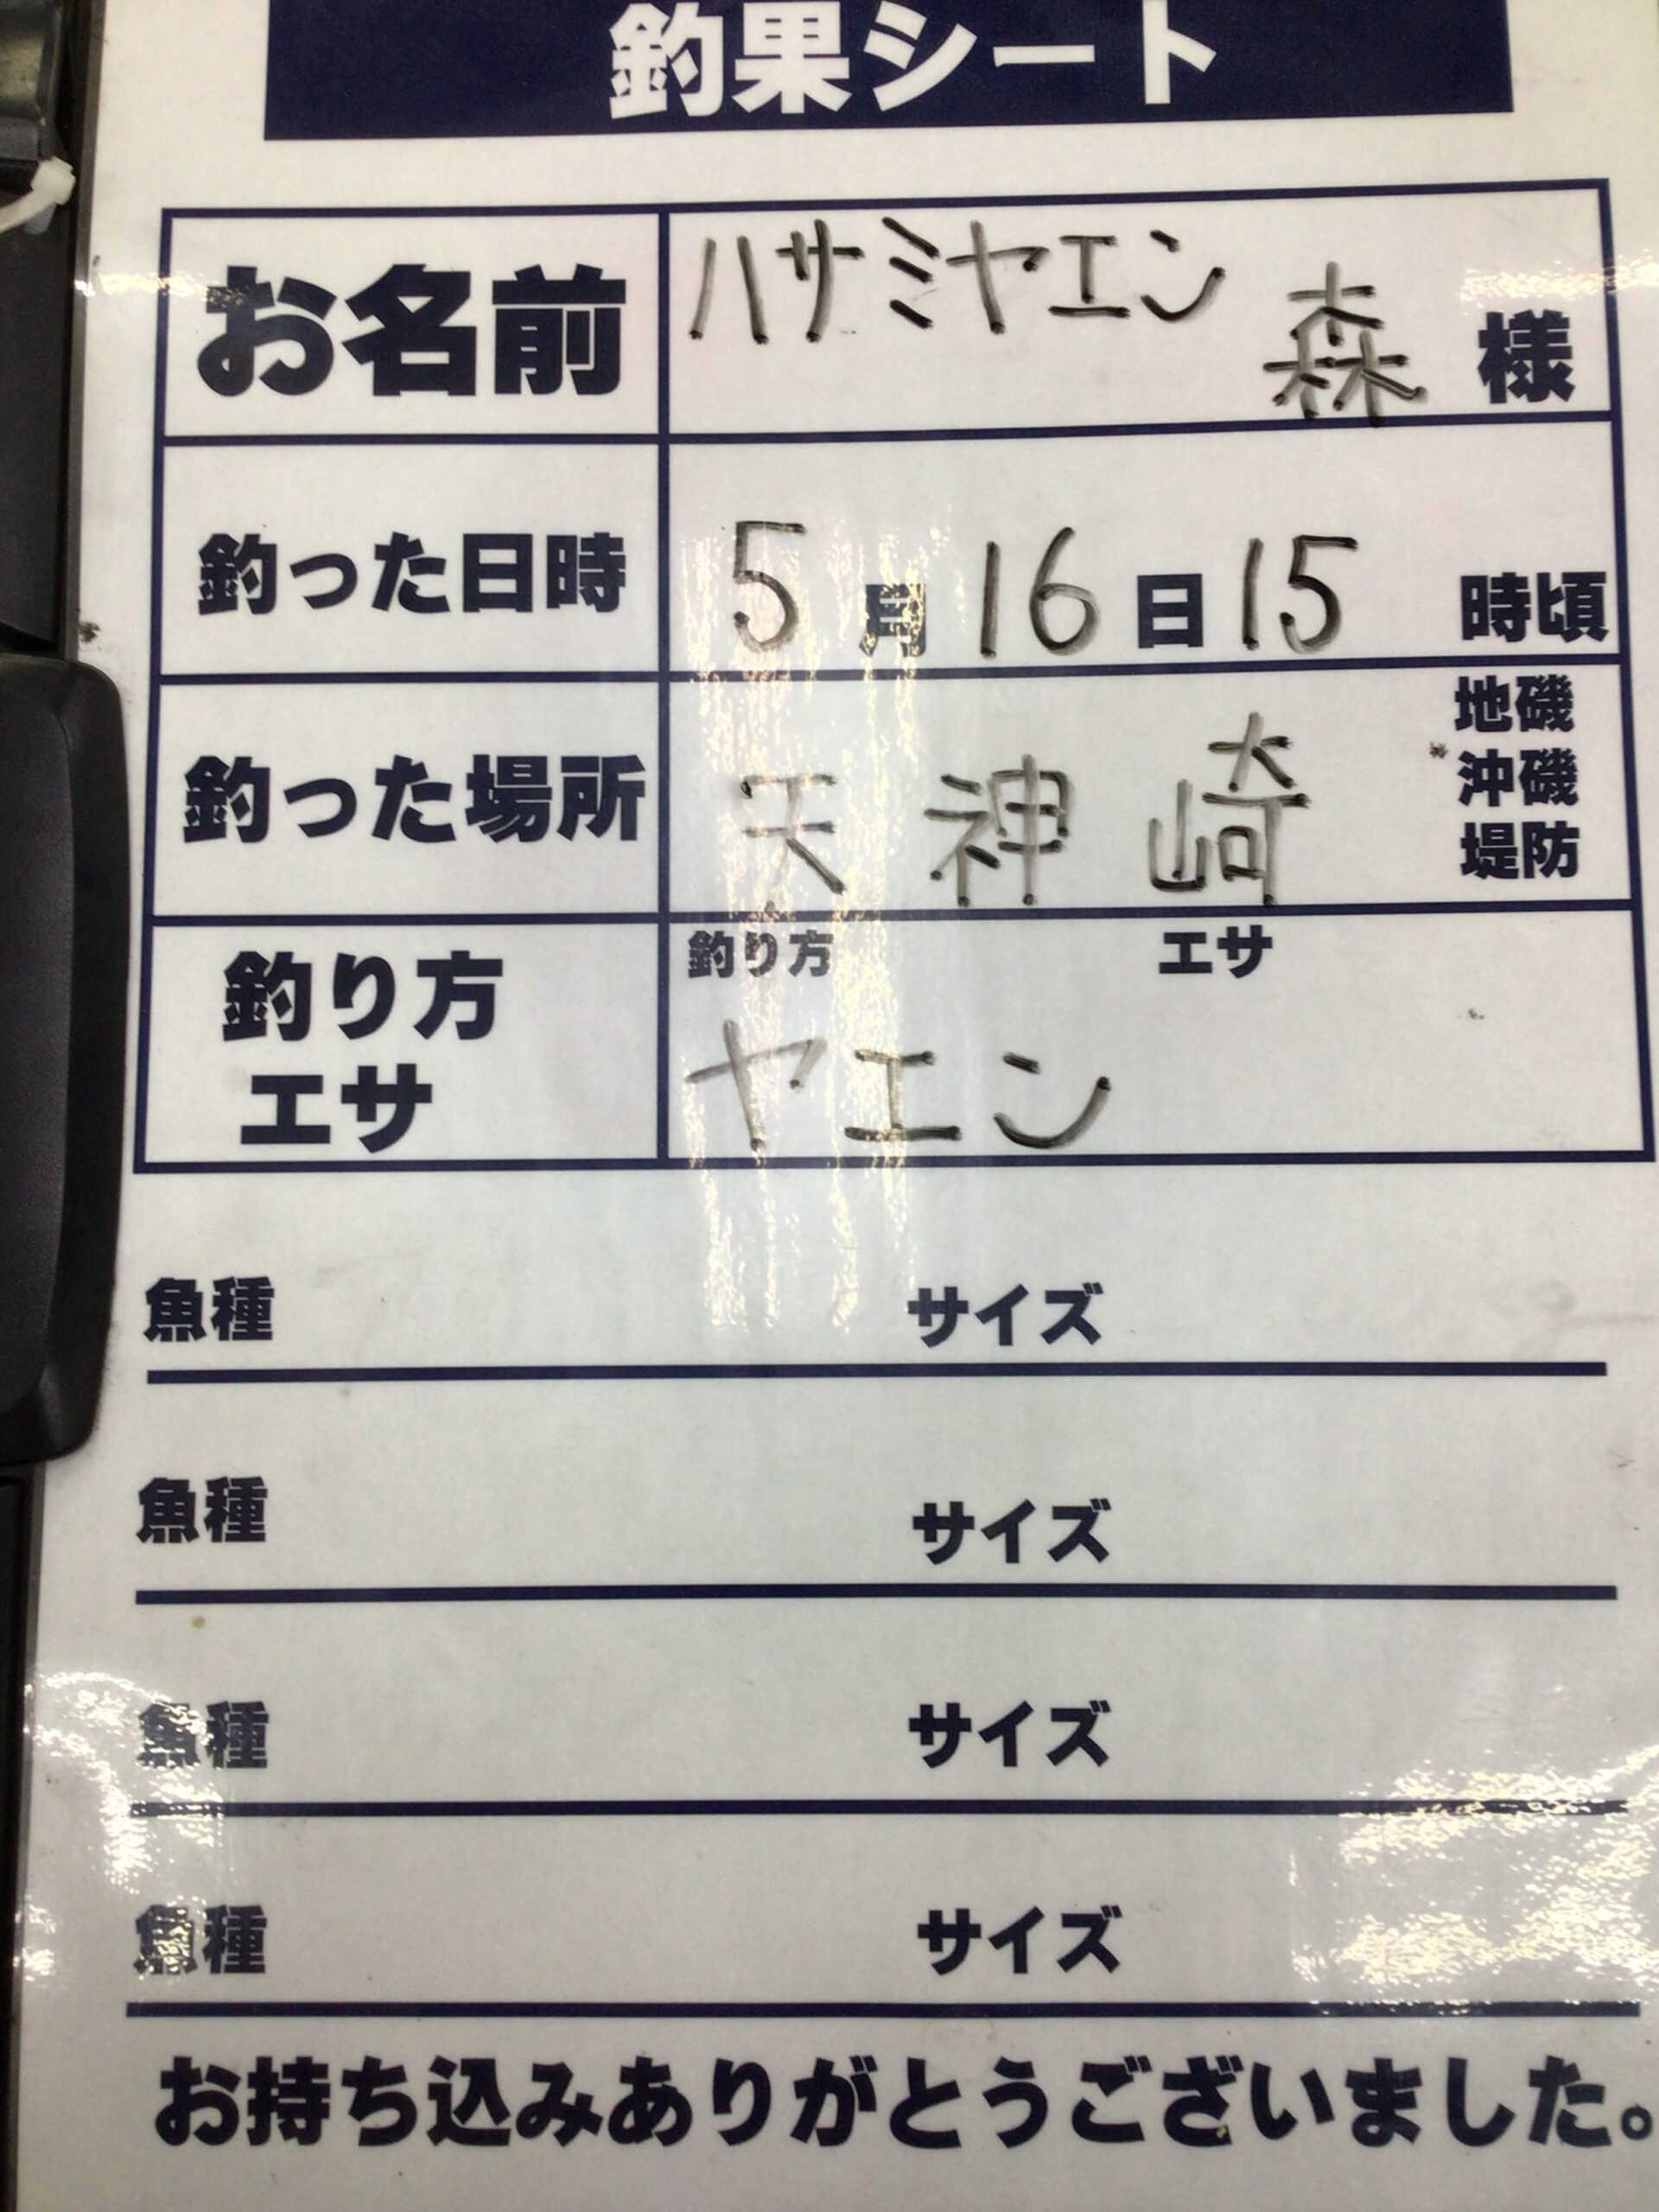 釣果シート
お名前 ハサミヤエン 森 様
釣った日時 5月16日15時頃
釣った場所 天神崎 地磯
沖磯
堤防
釣り方 エサ
釣り方
エサ ヤエン
魚種 サイズ
魚種 サイズ
魚種 サイズ
魚種 サイズ
お持ち込みありがとうございました。